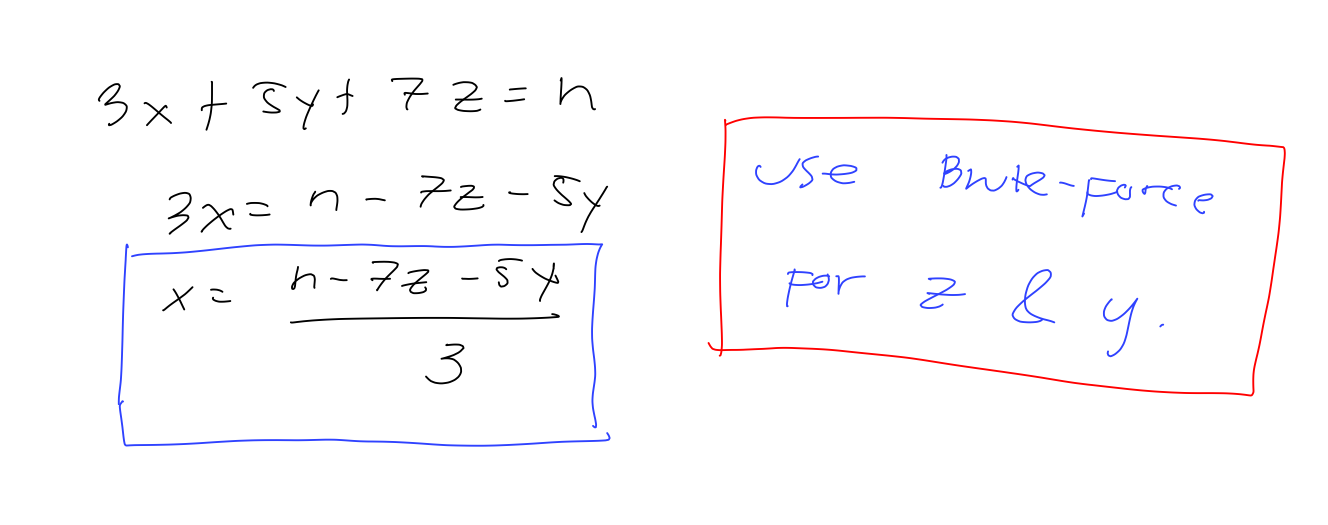 3x + 5y + 7z = n
3x = n - 7z - 5y
x = (n - 7z - 5y) / 3
use Brute-force
for z & y.